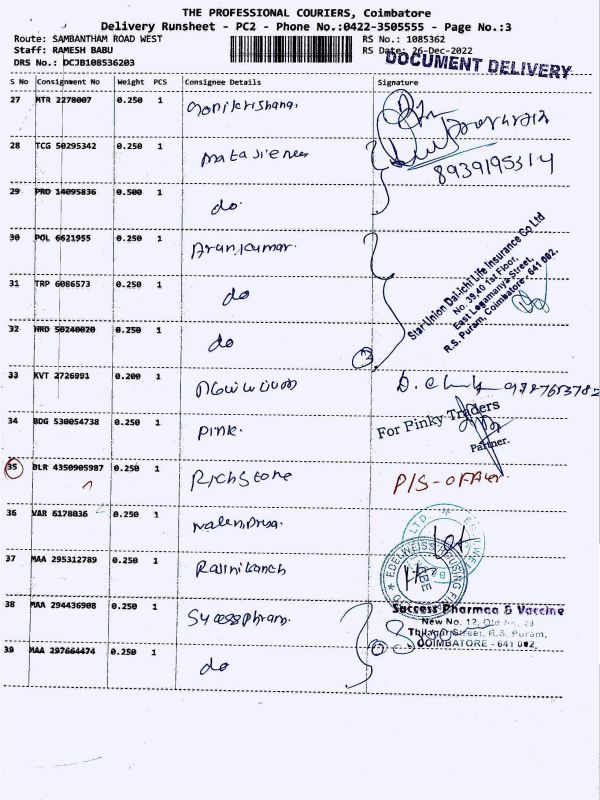 THE PROFESSIONAL COURIERS, Coimbatore
Delivery Runsheet - PC2 - Phone No.:0422-3505555 - Page No.:3
Route: SAMBANTHAM ROAD WEST RS No.: 1085362
Staff: RAMESH BABU RS Date: 26-Dec-2022
DRS No.: DCJB108536203 DOCUMENT DELIVERY
S No Consignment No Weight PCS Consignee Details Signature
27 MTR 2278007 0.250 1
28 TCG 50295342 0.250 1
8939195314
29 PRO 14095836 0.500 1 do.
30 POL 6621955 0.250 1 Arunkumar.
Star Union Dai-ichi Life Insurance Co Ltd
No. 39,40 1st Floor,
East Logamanya Street,
R.S. Puram, Coimbatore - 641 002.
31 TRP 6086573 0.250 1 do
32 HRD 50240020 0.250 1 do
33 KVT 2726991 0.200 1
34 BDG 530054738 0.250 1 Pink.
For Pinky Traders
Partner.
35 BLR 4350905987 0.250 1 Richstone P/S-
36 VAR 6178036 0.250 1
37 MAA 295312789 0.250 1 Rajinikanth
EDELWEISS HOUSING
38 MAA 294436908 0.250 1
Success Pharmaa & Vaccine
New No. 12, Old No. 29
Thilagar Street, R.S. Puram,
COIMBATORE - 641 002.
39 MAA 297664474 0.250 1 do